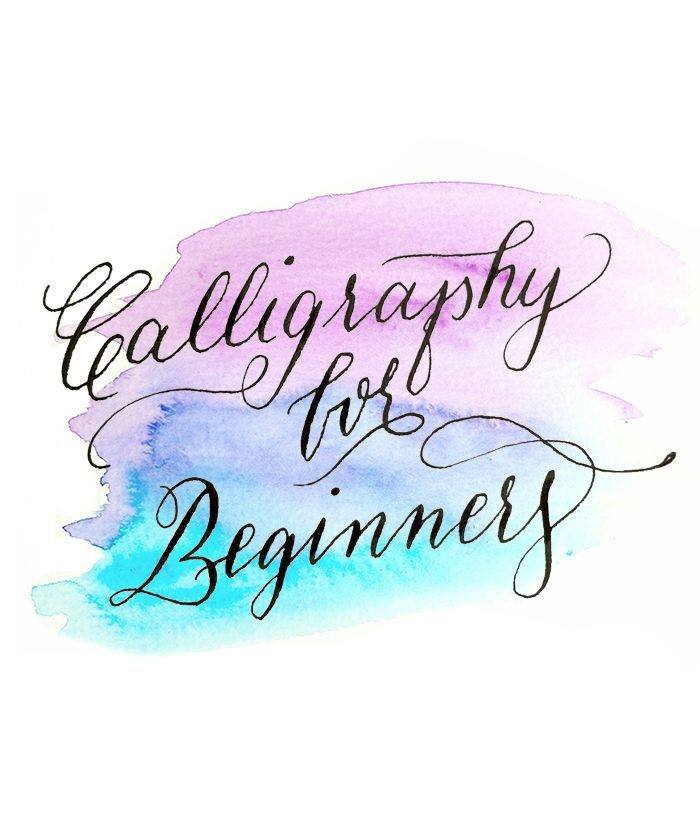 Calligraphy
for
Beginners